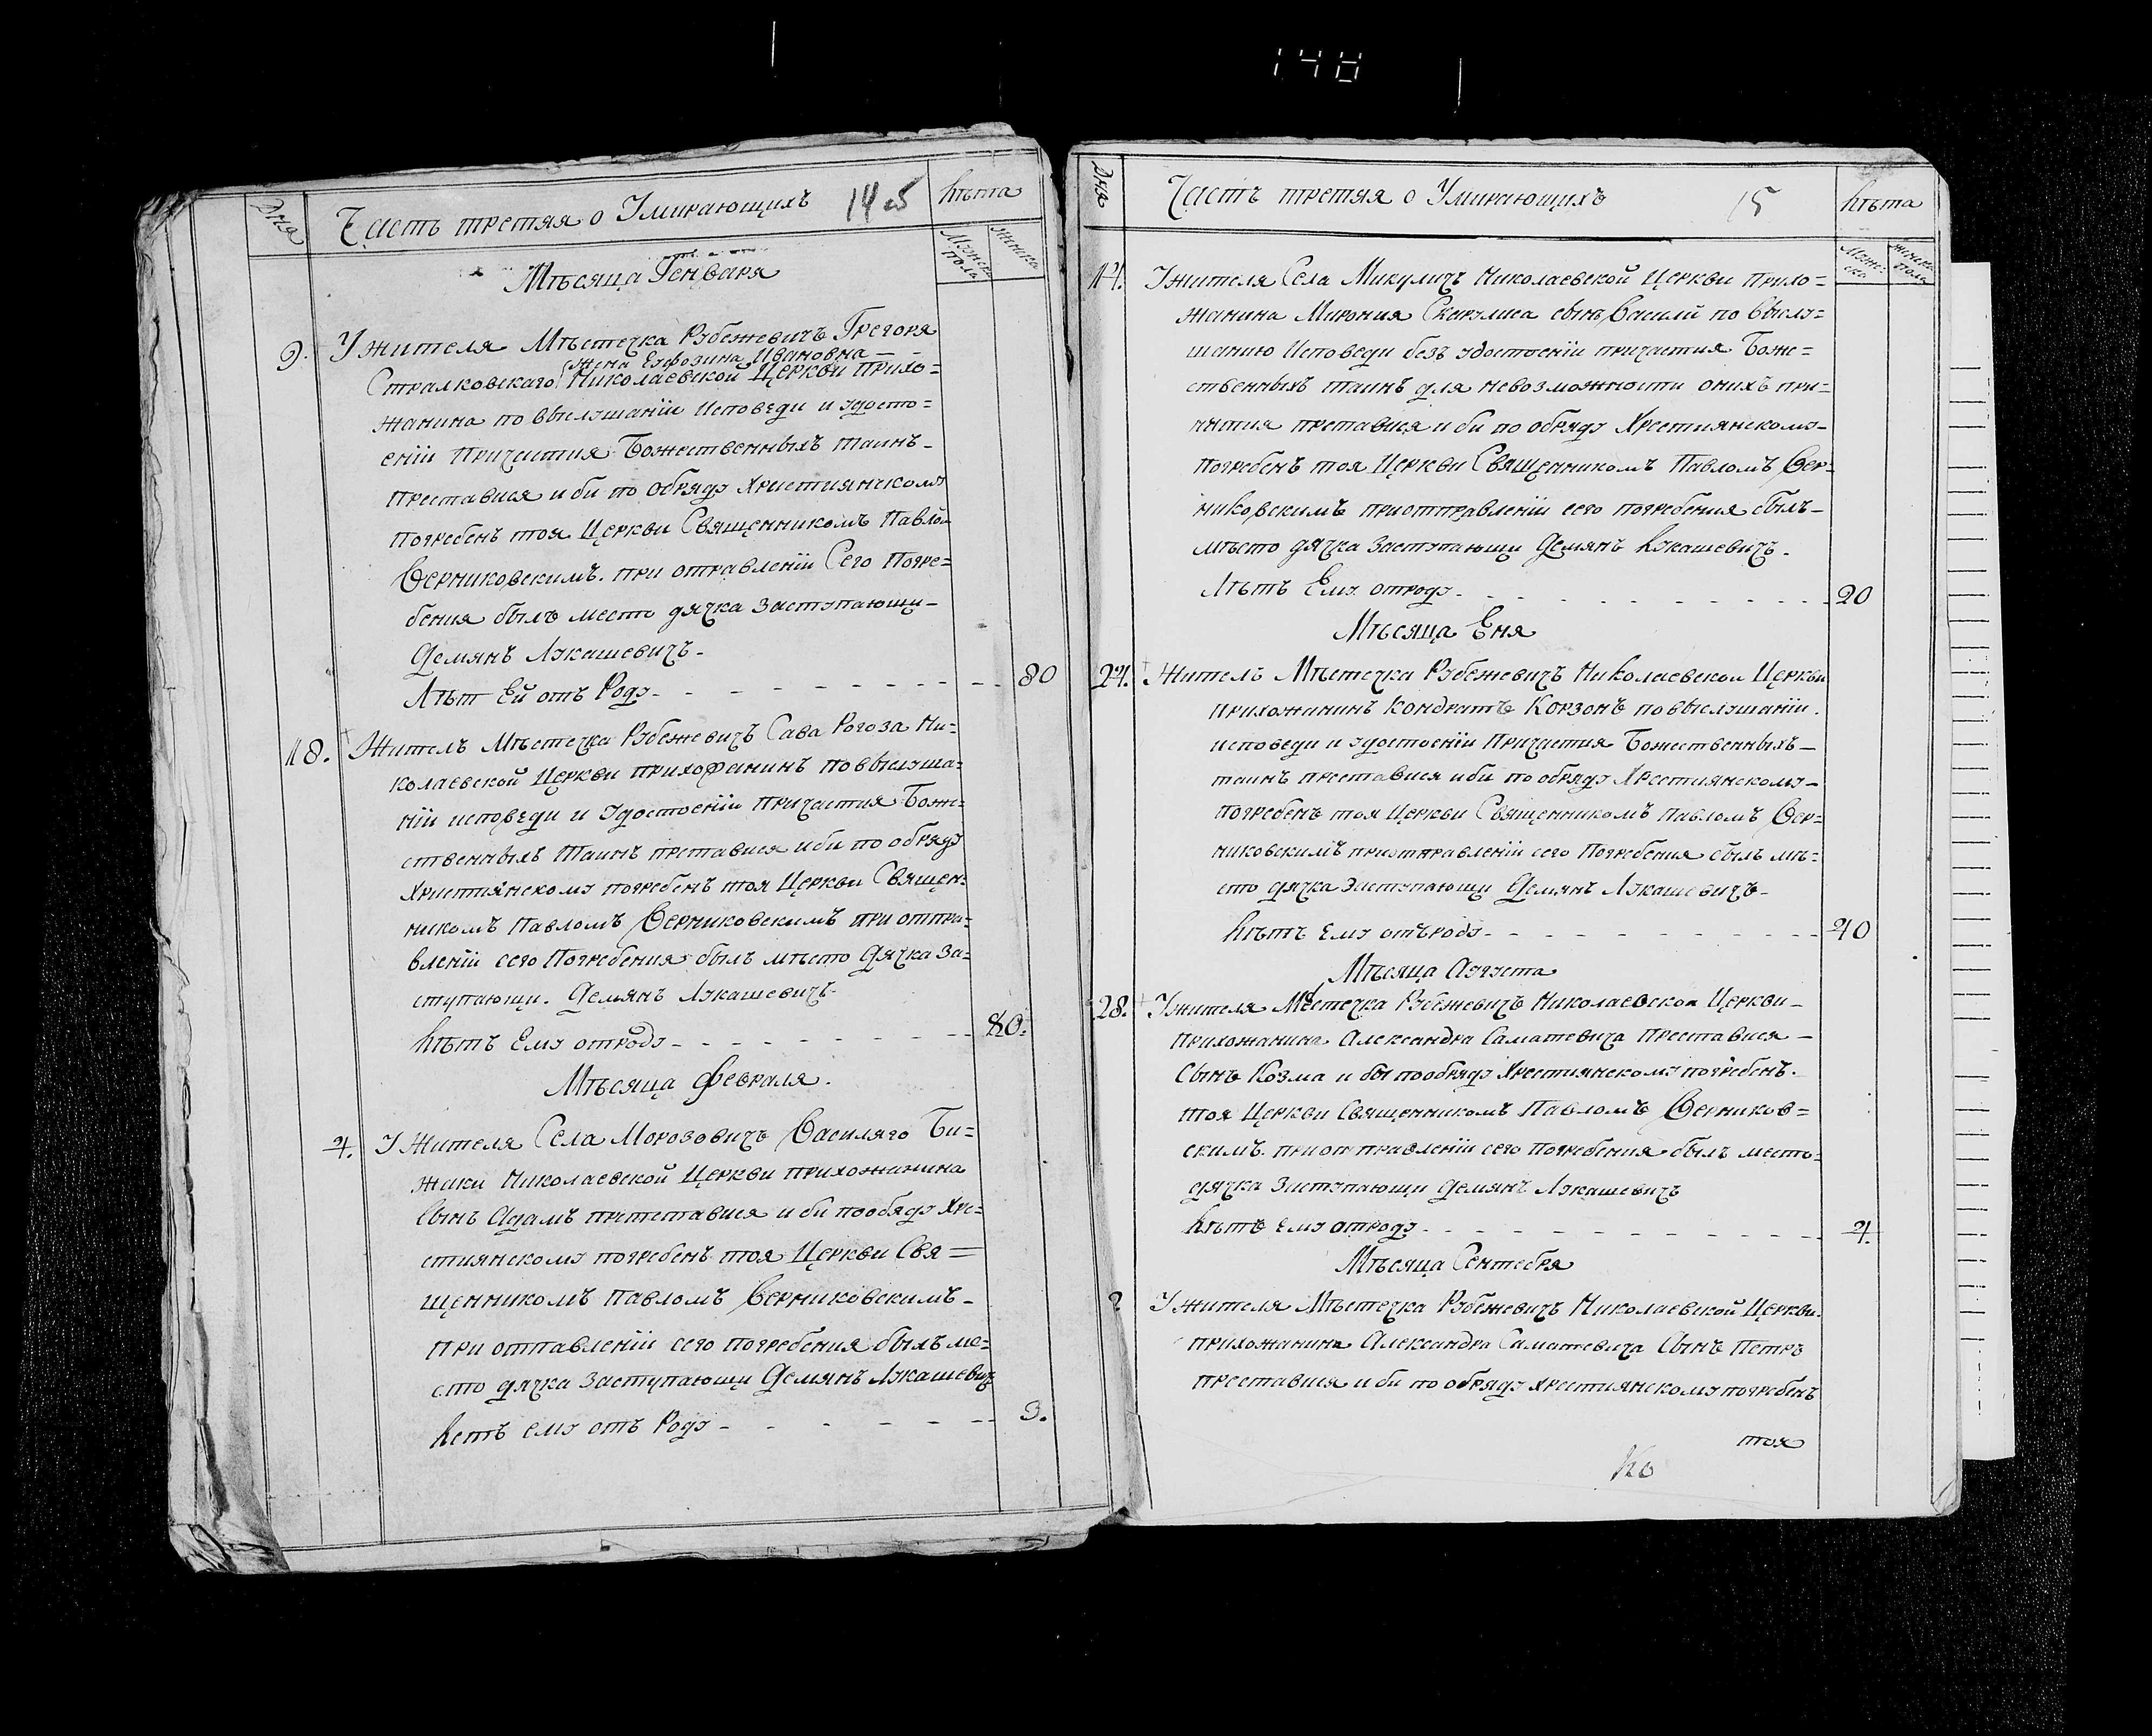 148
Дня
Часть третяя о Умирающихъ
14 об
Лѣта
Мужска пола
Женска
Мѣсяца Генваря
9. У жителя Мѣстечка Рубежевичъ Грегоря
Жена Еуфозина Ивановна
Стралковскаго Николаевской Церкви прихо=
жанина по выслушаніи Исповеди и удосто=
еніи Причастия Божественныхъ таинъ-
преставися и би по обряду Християнскому
погребенъ тоя Церкви Священникомъ Павлом
Верниковскимъ. при отравленіи Сего Погре=
бения былъ место дячка заступающи-
Демянъ Лукашевичъ-
Лѣт Ей отъ Роду - - - - - - - - - 80
18. Жителъ Мѣстечка Рубежевичъ Сава Рогоза Ни=
колаевской Церкви прихожанинъ по выслуша=
ніи исповеди и удостоеніи Причастия Боже=
ственныхъ Таинъ преставися и би по обряду
Християнскому погребенъ тоя Церкви Священ=
никомъ Павломъ Верниковскимъ при отпра=
вленіи сего Погребения былъ мѣсто Дячка За=
ступающи. Демянъ Лукашевичъ-
Лѣтъ Ему отроду - - - - - - - - - 80.
Мѣсяца Февраля.
4. У Жителя Села Морозовичъ Василяго Би=
жики Николаевской Церкви прихожанина
Сынъ Адамъ претставися и би пообяду Хре=
стиянскому погребенъ тоя Церкви Свя=
щенникомъ Павломъ Верниковскимъ-
при отпавленіи сего погребения былъ ме=
сто дячка Заступающи Демянъ Лукашевичъ
Летъ ему отъ Роду - - - - - - - 3.
Дня
Часть третяя о Умирающихъ
15
Лѣта
Мужеска
Женска Пола
14. У жителя Села Микуличъ Николаевской Церкви Прихо=
жанина Мирония Скорулиса сынъ Василй по выслу=
шанию Исповеди безъ удостоеніи причастия Боже=
ственныхъ таинъ для невозможности онихъ при=
нятия преставися и би по обряду Хрестиянскому-
погребенъ тоя Церкви Священникомъ Павломъ Вер=
никовскимъ приотправленіи сего погребения былъ-
мѣсто дячка Заступающи Демянъ Лукашевичъ.
Лѣтъ Ему отроду - - - - - - - - - 20
Мѣсяца Еня
24. Жителъ Мѣстечка Рубежевичъ Николаевскои Церкви
прихожининъ Кондратъ Корзонъ по выслушаніи.
исповеди и удостоеніи Причастия Божественныхъ-
таинъ преставися и би по обряду Хрестиянскому-
погребенъ тоя Церкви Священникомъ Павломъ Вер=
никовскимъ приотправленіи сего Погребения былъ мѣ=
сто дячка Заступающи Демянъ Лукашевичъ-
Лѣтъ Ему отъроду - - - - - - - - - 40
Мѣсяца Августа
28. У жителя Местечка Рубежевичъ Николаевскои Церкви-
Прихожанина Александра Саматевича Преставися-
Сынъ Козма и бы пообряду Хрестиянскому погребенъ.
тоя Церкви Священникомъ Павломъ Верников=
скимъ. приотправленіи сего Погребения былъ место=
дячка Заступающи Демянъ Лукашевичъ
Лѣтъ Ему отроду - - - - - - - - - 4.
Мѣсяца Сентебря
? У жителя Мѣстечка Рубежевичъ Николаевской Церкви.
прихожанина Александра Саматевича Сынъ Петръ
преставися и би по обряду Хрестиянскому погребенъ
тоя